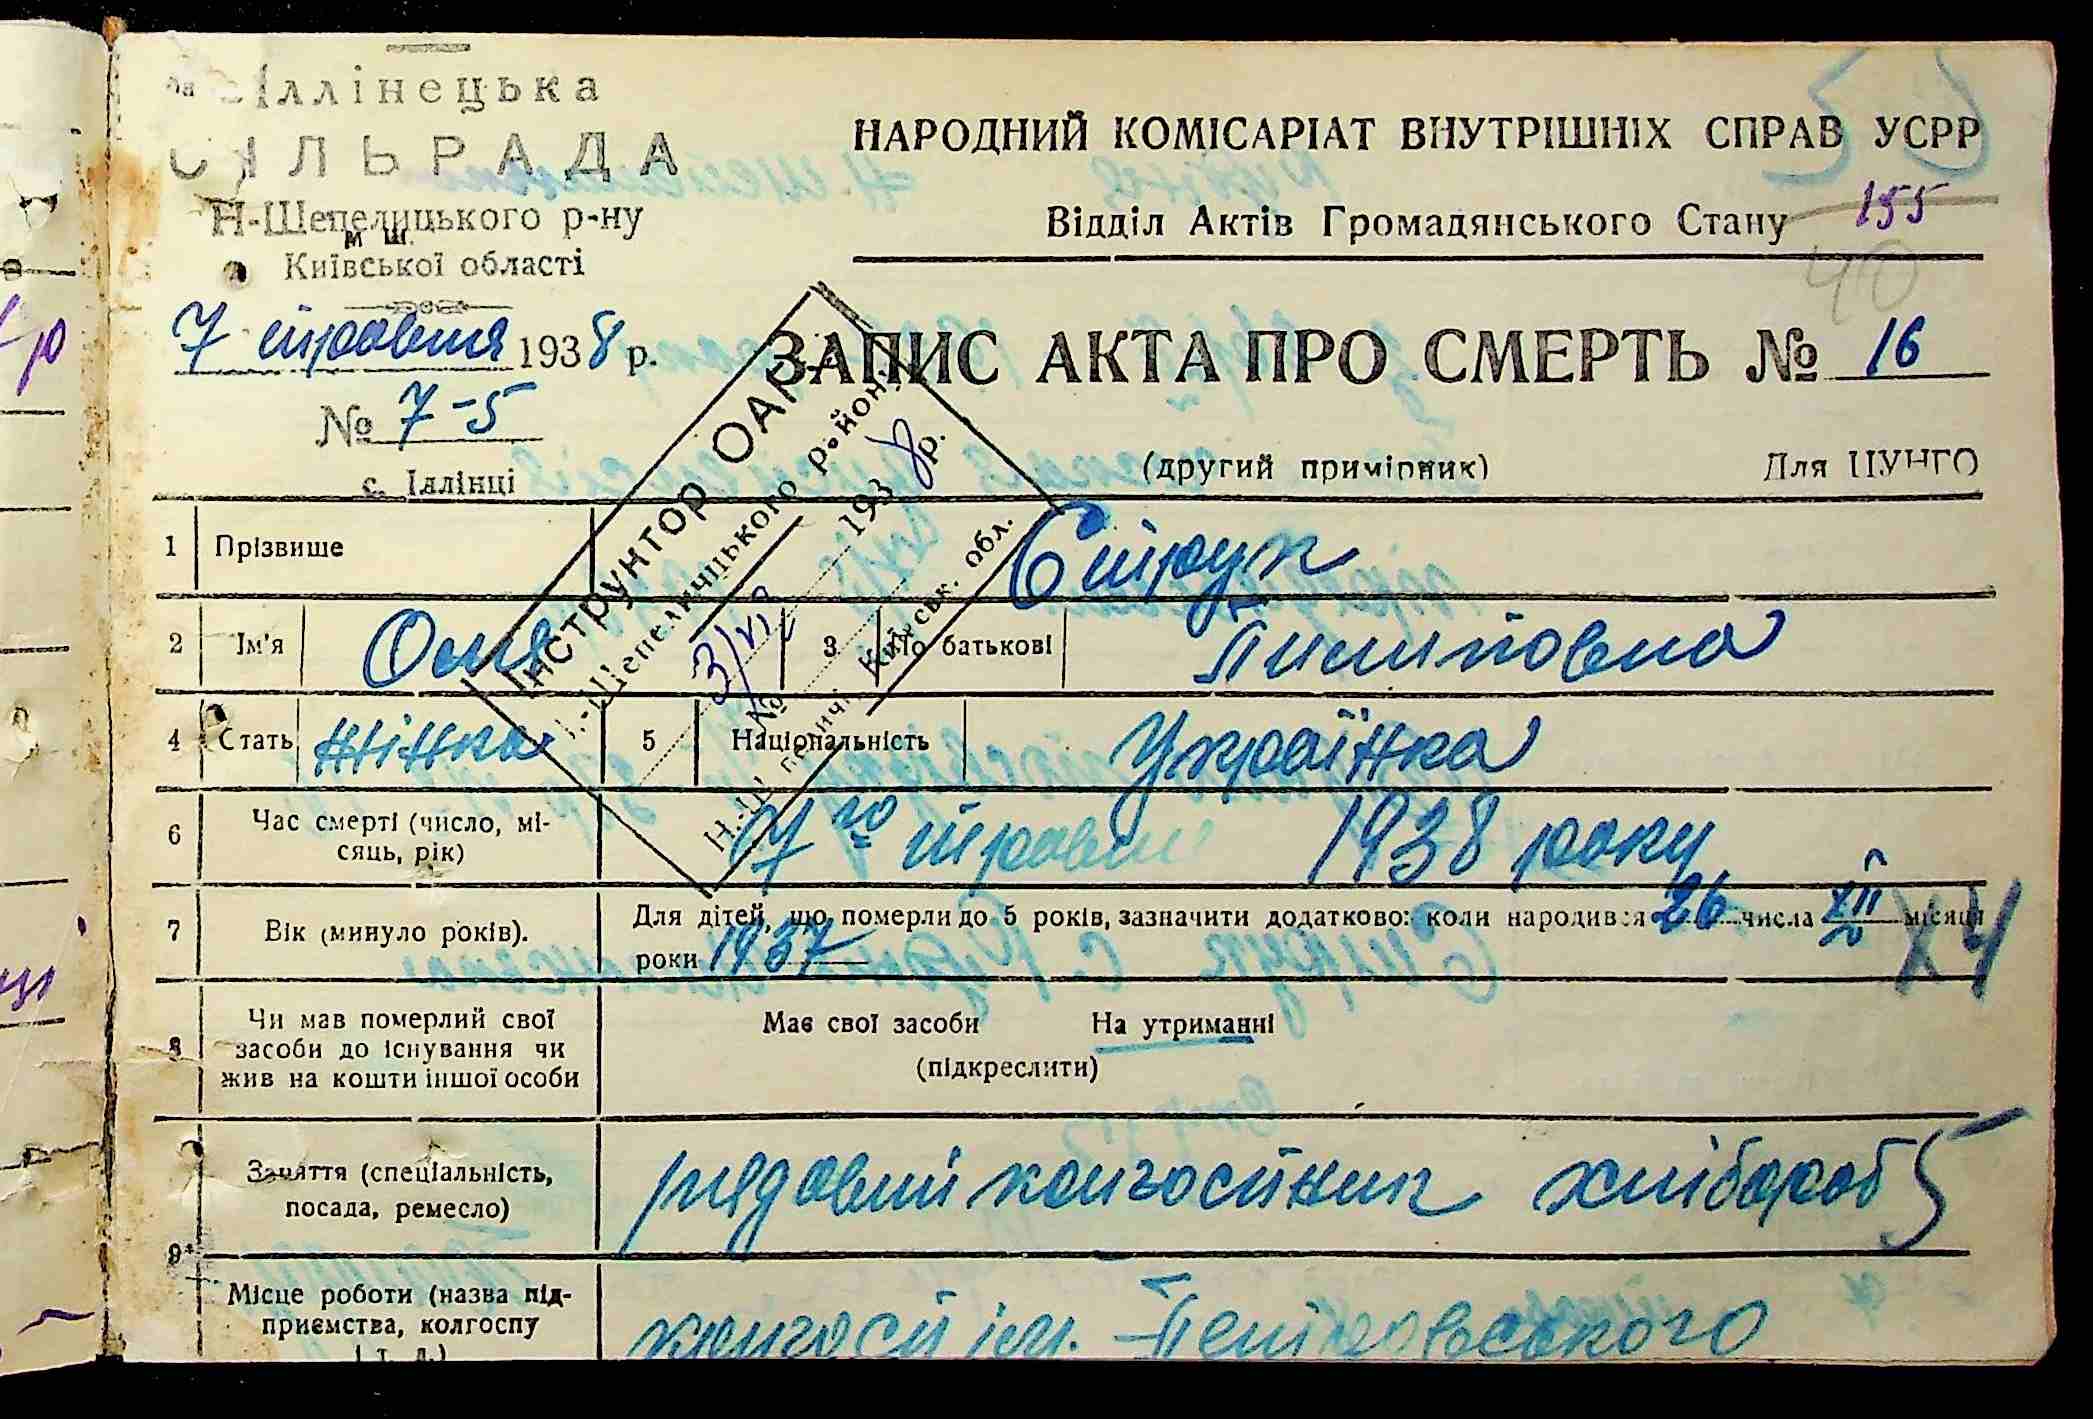 Іллінецька
СІЛЬРАДА
Н-Шепелицького р-ну
Київської області
7 травня 1938 р.
№ 7-5
с. Іллінці
НАРОДНИЙ КОМІСАРІАТ ВНУТРІШНІХ СПРАВ УСРР
Відділ Актів Громадянського Стану 155
40
ЗАПИС АКТА ПРО СМЕРТЬ № 16
(другий примірник) Для ЦУНГО
Інструктор ОАГС
Н.-Шепеличцького району
193 8 р.
Київськ. обл.
1 Прізвище Струк
2 Ім'я Оля 3 По батькові Пилиповна
4 Стать жінка 5 Національність Українка
6 Час смерті (число, мі-
сяць, рік) 7го травня 1938 року
7 Вік (минуло років). Для дітей, що померли до 5 років, зазначити додатково: коли народився 26 числа XII місяця
роки 1937
8 Чи мав померлий свої
засоби до існування чи
жив на кошти іншої особи
Має свої засоби На утриманні
(підкреслити)
9 Заняття (спеціальність,
посада, ремесло) рядовий колгоспник хлібороб 5
Місце роботи (назва під-
приємства, колгоспу
і т. д.) колгосп ім. Петровського